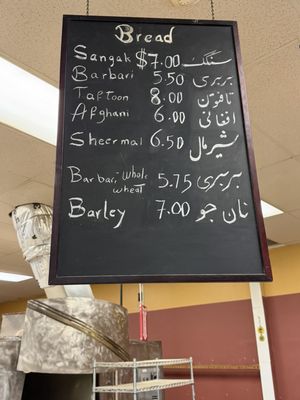 Bread
Sangak $7.00 سنگک
Barbari 5.50 بربری
Taftoon 8.00 تافتون
Afghani 6.00 افغانی
Sheermal 6.50 شیرمال
Barbari whole wheat 5.75 بربری
Barley 7.00 نان جو